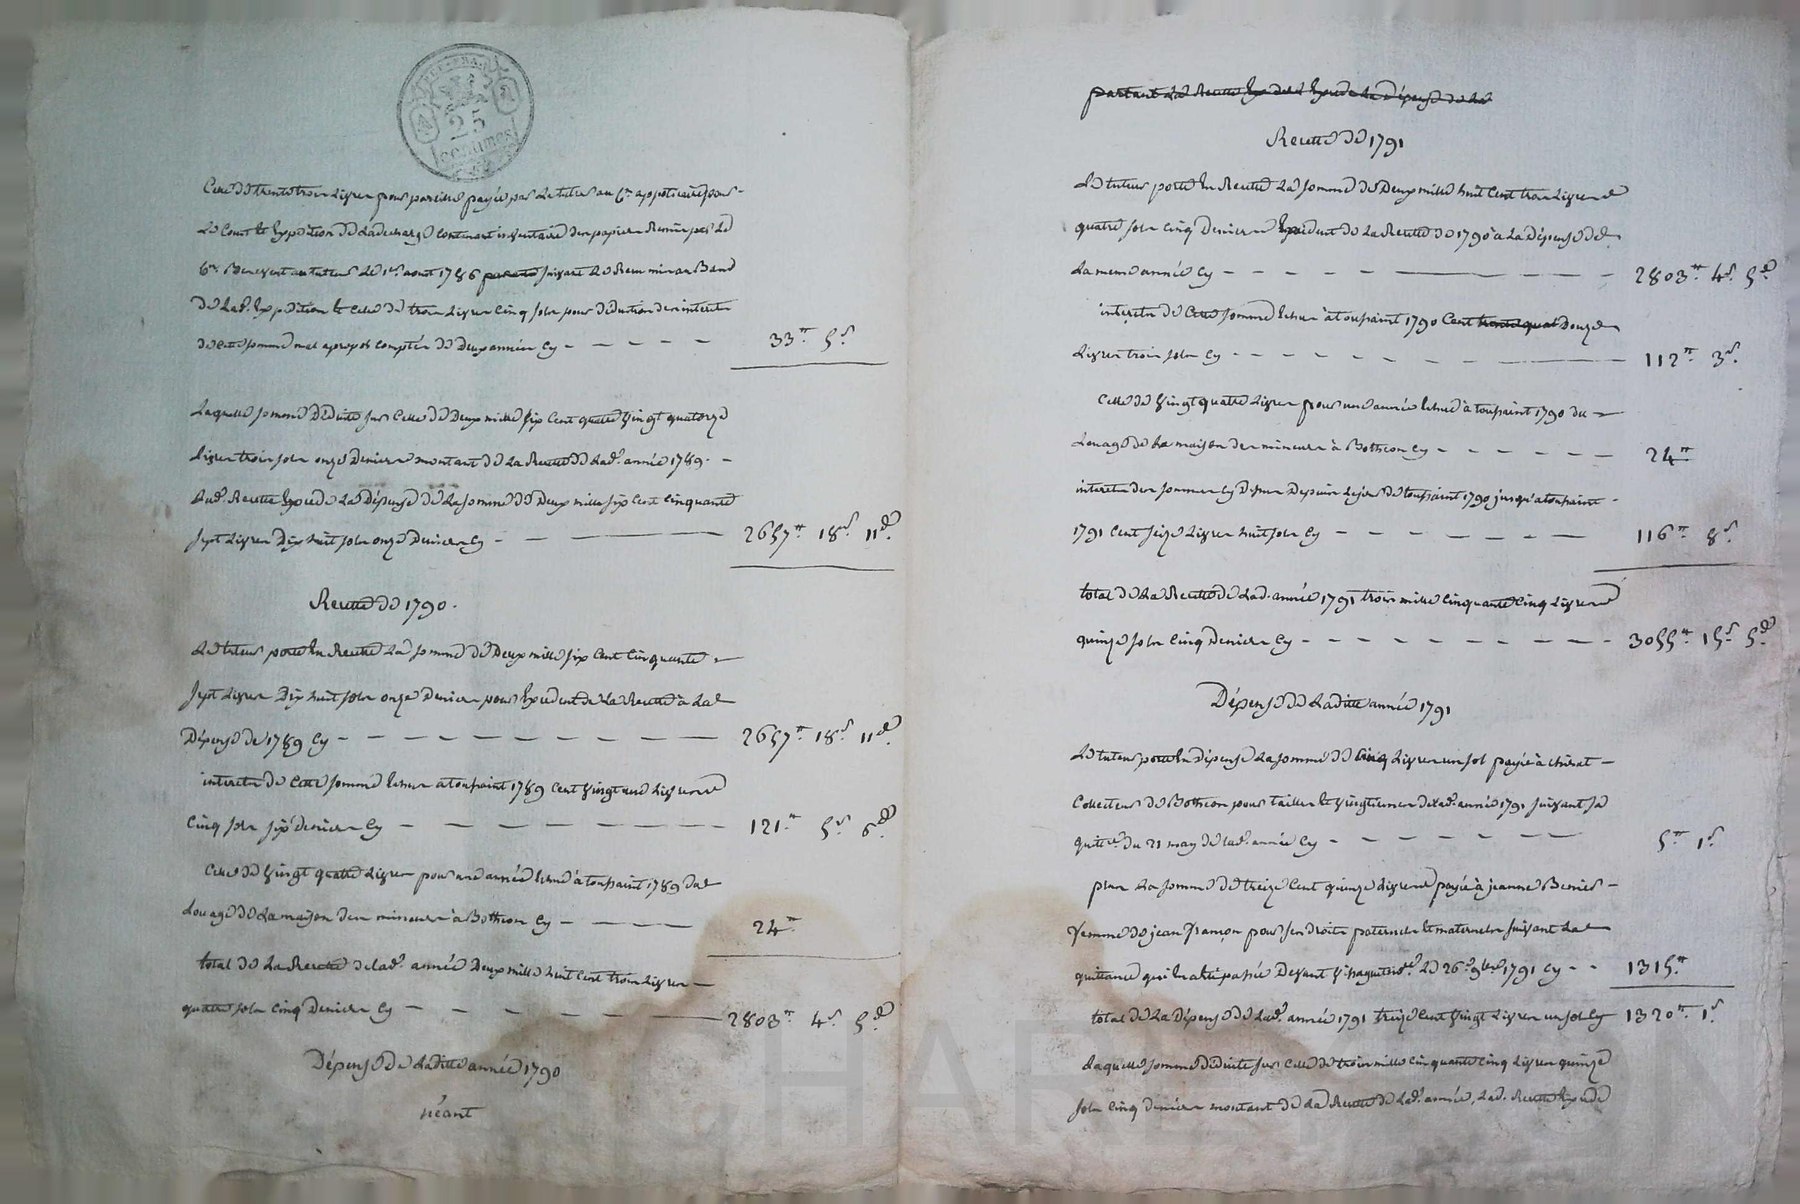 REP. FRA.
25
centimes
Celle de trente trois livres pour pareille payée par le tuteur au Cen apoticaire pour
le Cout et Expedition de la decharge Contenant inventaire des papiers Remis par le
Cen Benevent au tuteur le 1er aout 1786 suivant le Recu mis au Band
de lad. Expedition et Celle de trois livres Cinq sols pour deduction des interets
de cette somme mal apropos Comptés de Deux années Cy 33# 5s
Laquelle somme Déduite sur Celle de Deux mille six Cent quatre Vingt quatorze
livres trois sols onze Deniers montant de la Recette de lad. année 1789
lad. Recette Excede la Dépense de la somme de Deux mille six Cent Cinquante
sept livres Dix huit sols onze Deniers Cy 2657# 18s 11d
Recette de 1790.
Le tuteur porte En Recette la somme de Deux mille six Cent Cinquante
sept livres Dix huit sols onze Deniers pour Excedent de la Recette à la
Dépense de 1789 Cy 2657# 18s 11d
interets de Cette somme Echus a toussaint 1789 Cent Vingt une livres
Cinq sols six deniers Cy 121# 5s 6d
Celle de Vingt quatre livres pour une année Echue à toussaint 1789 du
Louage de la maison des mineurs à Botheon Cy 24#
total de la Recette de lad. année Deux mille huit Cent trois livres
quatre sols Cinq Deniers Cy 2803# 4s 5d
Dépense de Laditte année 1790
néant
partant la Recette Excede la Dépense de la
Recette de 1791
Le tuteur porte En Recette la somme de Deux mille huit Cent trois livres
quatre sols Cinq Deniers Excedent de la Recette de 1790 a la Dépense de
la meme année Cy 2803# 4s 5d
interets de Cette somme Echus à toussaint 1790 Cent trente quat Douze
livres trois sols Cy 112# 3s
Celle de Vingt quatre livres pour une année Echue à toussaint 1790 du
Louage de la maison des mineurs à Botheon Cy 24#
interets des sommes Cy Dessus Depuis le jour de toussaint 1790 jusqu'a toussaint
1791 Cent seize livres huit sols Cy 116# 8s
total de la Recette de lad. année 1791 trois mille Cinquante Cinq livres
quinze sols Cinq Deniers Cy 3055# 15s 5d
Dépense de Laditte année 1791
Le tuteur porte En dépense la somme de Cinq livres un sol payée à
Collecteur de Botheon pour tailles et Vingtiemes de lad. année 1791 suivant sa
quitce du 21 may de lad. année Cy 5# 1s
plus la somme de treize Cent quinze livres payée à jeanne
femme de jean françon pour ses droits paternels et maternels suivant la
quittance qui En a été passée Devant le 26 9bre 1791 Cy 1315#
total de la Dépense de lad. année 1791 treize Cent Vingt livres un sol Cy 1320# 1s
Laquelle somme Déduite sur Celle de trois mille Cinquante Cinq livres quinze
sols Cinq deniers montant de la Recette de lad. année, lad. Recette Excede